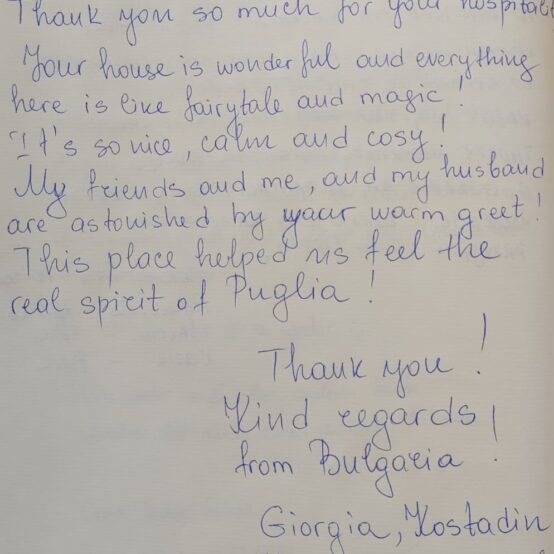 Thank you so much for your hospitalit
Your house is wonderful and everything
here is like fairytale and magic!
It's so nice, calm and cosy!
My friends and me, and my husband
are astonished by your warm greet!
This place helped us feel the
real spirit of Puglia!
Thank you!
Kind regards
from Bulgaria!
Giorgia, Kostadin